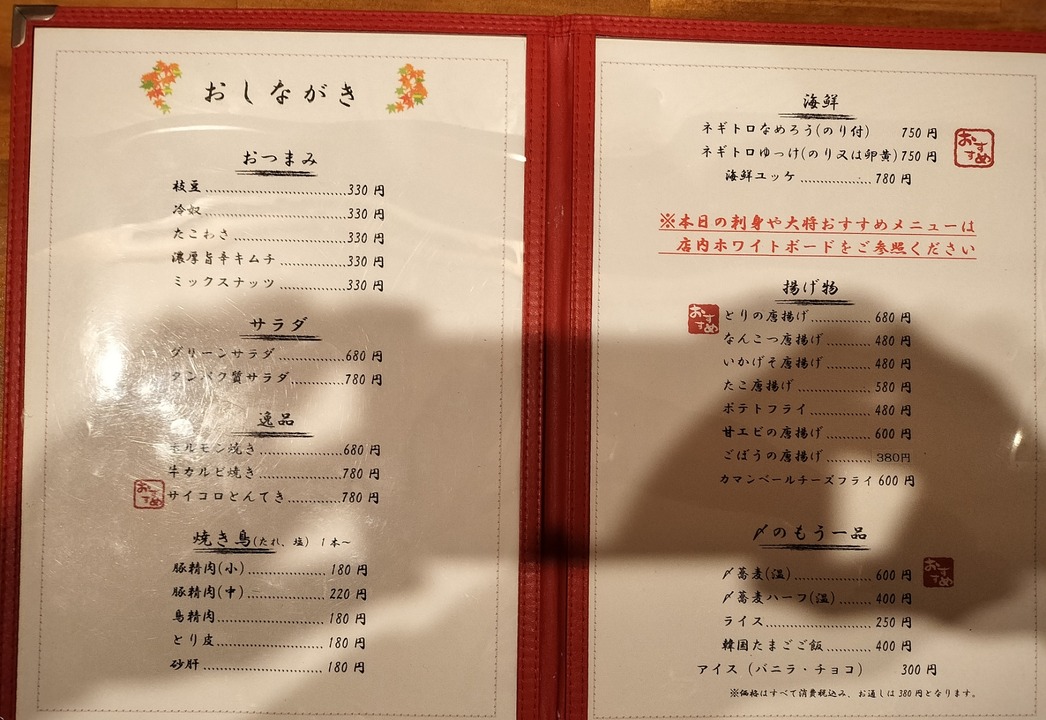 おしながき
おつまみ
枝豆..............................330 円
冷奴..............................330 円
たこわさ.........................330 円
濃厚旨辛キムチ...............330 円
ミックスナッツ...............330 円
サラダ
グリーンサラダ...............680 円
タンパク質サラダ............780 円
逸品
ホルモン焼き..................680 円
牛カルビ焼き..................780 円
おすすめ
サイコロとんてき............780 円
焼き鳥(たれ、塩) 1本~
豚精肉(小)..................180 円
豚精肉(中)..................220 円
鳥精肉.........................180 円
とり皮.........................180 円
砂肝............................180 円
海鮮
ネギトロなめろう(のり付) 750 円
ネギトロゆっけ(のり又は卵黄)750 円
おすすめ
海鮮ユッケ...............780 円
※本日の刺身や大将おすすめメニューは
店内ホワイトボードをご参照ください
揚げ物
おすすめ
とりの唐揚げ............680 円
なんこつ唐揚げ.........480 円
いかげそ唐揚げ.........480 円
たこ唐揚げ...............580 円
ポテトフライ............480 円
甘エビの唐揚げ.........600 円
ごぼうの唐揚げ.........380円
カマンベールチーズフライ 600 円
〆のもう一品
〆蕎麦(温)...............600 円
おすすめ
〆蕎麦ハーフ(温)......400 円
ライス.....................250 円
韓国たまごご飯.........400 円
アイス (バニラ・チョコ) 300 円
※価格はすべて消費税込み、お通しは380円となります。